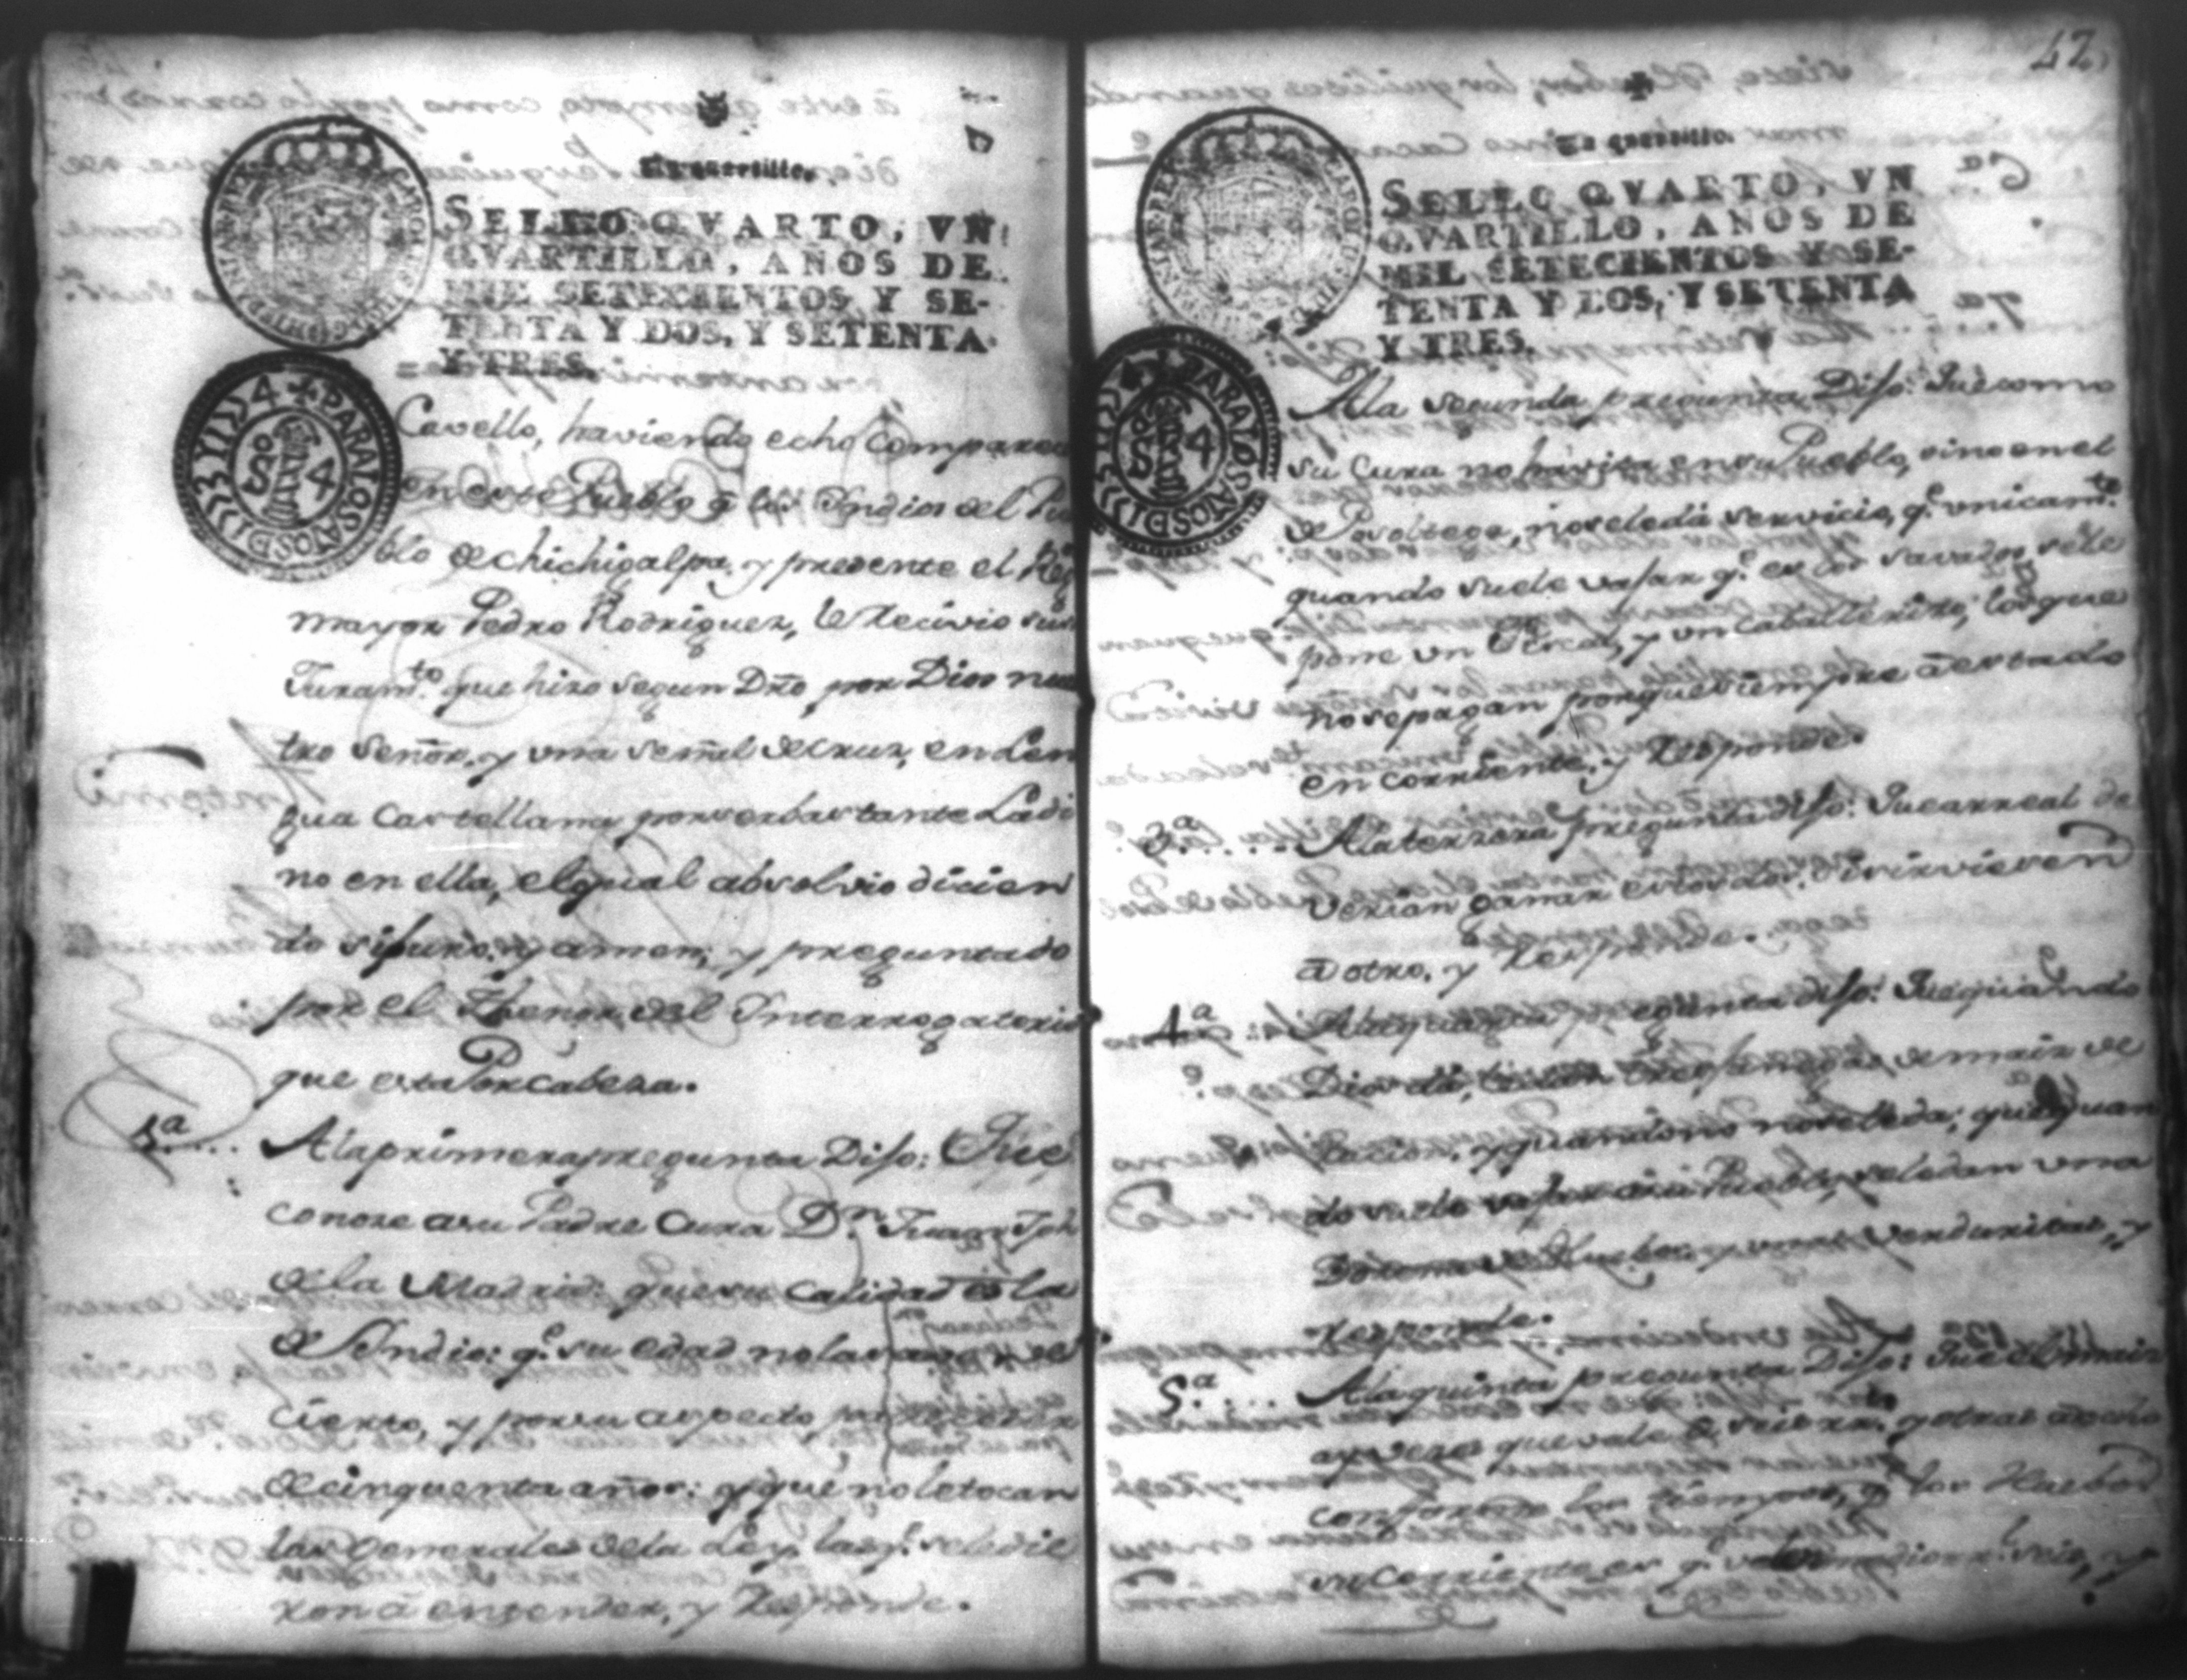 Un quartillo.
SELLO QVARTO, VN
QVARTILLO, AÑOS DE
MIL SETECIENTOS Y SE-
TENTA Y DOS, Y SETENTA
Y TRES.
PARA LOS AÑOS D
Cavello, haviendo echo comparec
en este Pueblo a los Indios del Pu
blo de chichigalpa, y presente el Reg
mayor Pedro Rodriguez, le recivio su
Juram.to que hizo segun Dro por Dios nues
tro Señor, y una señal de cruz, en Len
gua Castellana por ser bastante Ladi
no en ella, el qual absolvio dicien
do si juro, y amen; y preguntado
por el thenor del Interrogatorio
que esta Por cabeza.
1.a .... A la primera pregunta Dijo: Que
conose a su Padre Cura D.n Juan Jph
de la Madriz: que su calidad es la
de Indio: q.e su edad no la save de
cierto, y por su aspecto parece ser
de cinquenta años: y que no le tocan
las Generales de la Ley, las q.e se le die
ron â entender, y Responde.
42,
Un quartillo.
SELLO QVARTO, VN
QVARTILLO, AÑOS DE
MIL SETECIENTOS Y SE-
TENTA Y DOS, Y SETENTA
Y TRES.
PARA LOS AÑOS D
A la segunda pregunta Dijo: Que como
su Cura no havita en su Pueblo, sino en el
de Posoltega, no se le dá servicio, q.e unicam.te
quando suele vajar q.e es los savados se le
pone un Fiscal, y un caballerizo, los que
no se pagan porque siempre â estado
en corriente, y Responde.
3.a .... A la terzera pregunta dijo: Que a real de
verian ganar estos dos, si sirviesen
â otro, y Responde.
4.a A la quarta pregunta dijo: Que quando
Dios dá, le dan tres fanegas de maiz de
Racion, y quando no no se le da; que quan
do suele vajar a su Pueblo, se le dan una
Dosena de Huebos, y unas verduritas, y
Responde.
5.a .... A la quinta pregunta Dijo: Que el maiz
ay vezes que vale â seis rr.s y otras â ocho
conforme los tiempos, q.e los Huebos
su corriente es q.e valen medio r.l seis, y